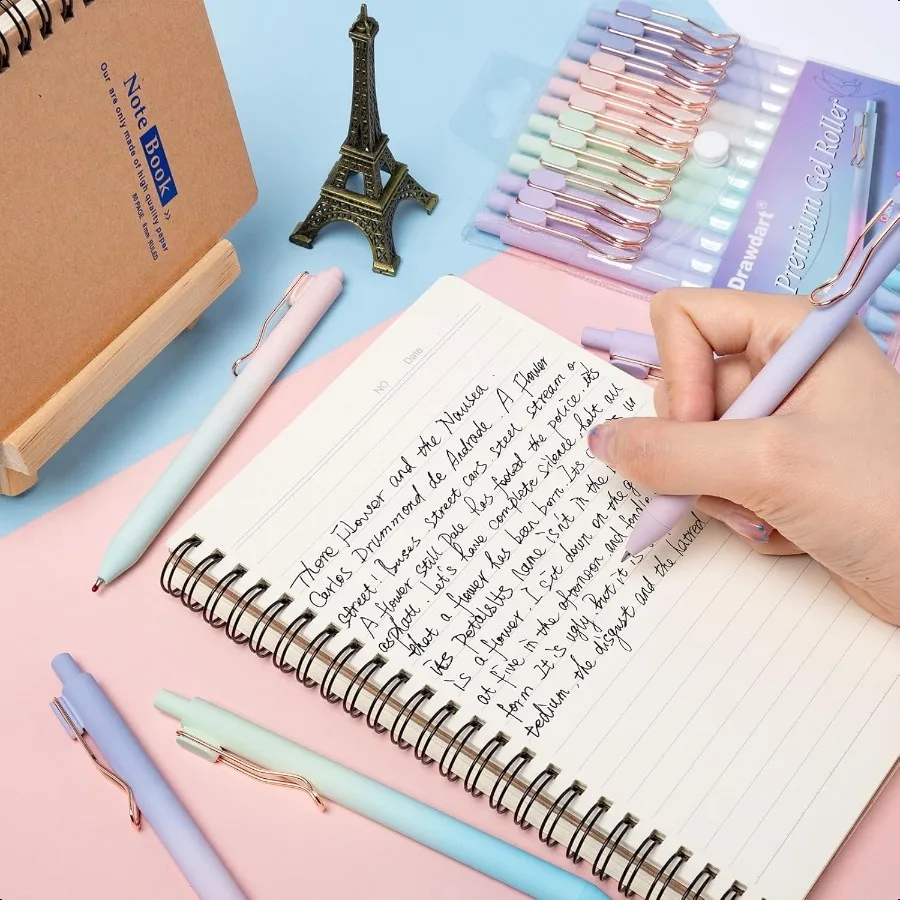 Note Book >>
Our are only made of high quality paper
80 PAGE 8mm RULED
Drawdart®
Premium Gel Roller
NO
Date
Flower and the Nausea.
Carlos Drummond de Andrade A Flower
street! Buses street cars steel stream o
A flower still pale has fooled the police its
asphalt Let's have complete silence halt all
that a flower has been born Its
its petalsits name isn't in the
is a flower. I sit down on the g
at five in the afternoon and fondle
form it is ugly But it is
tedium, the disgust and the hatred